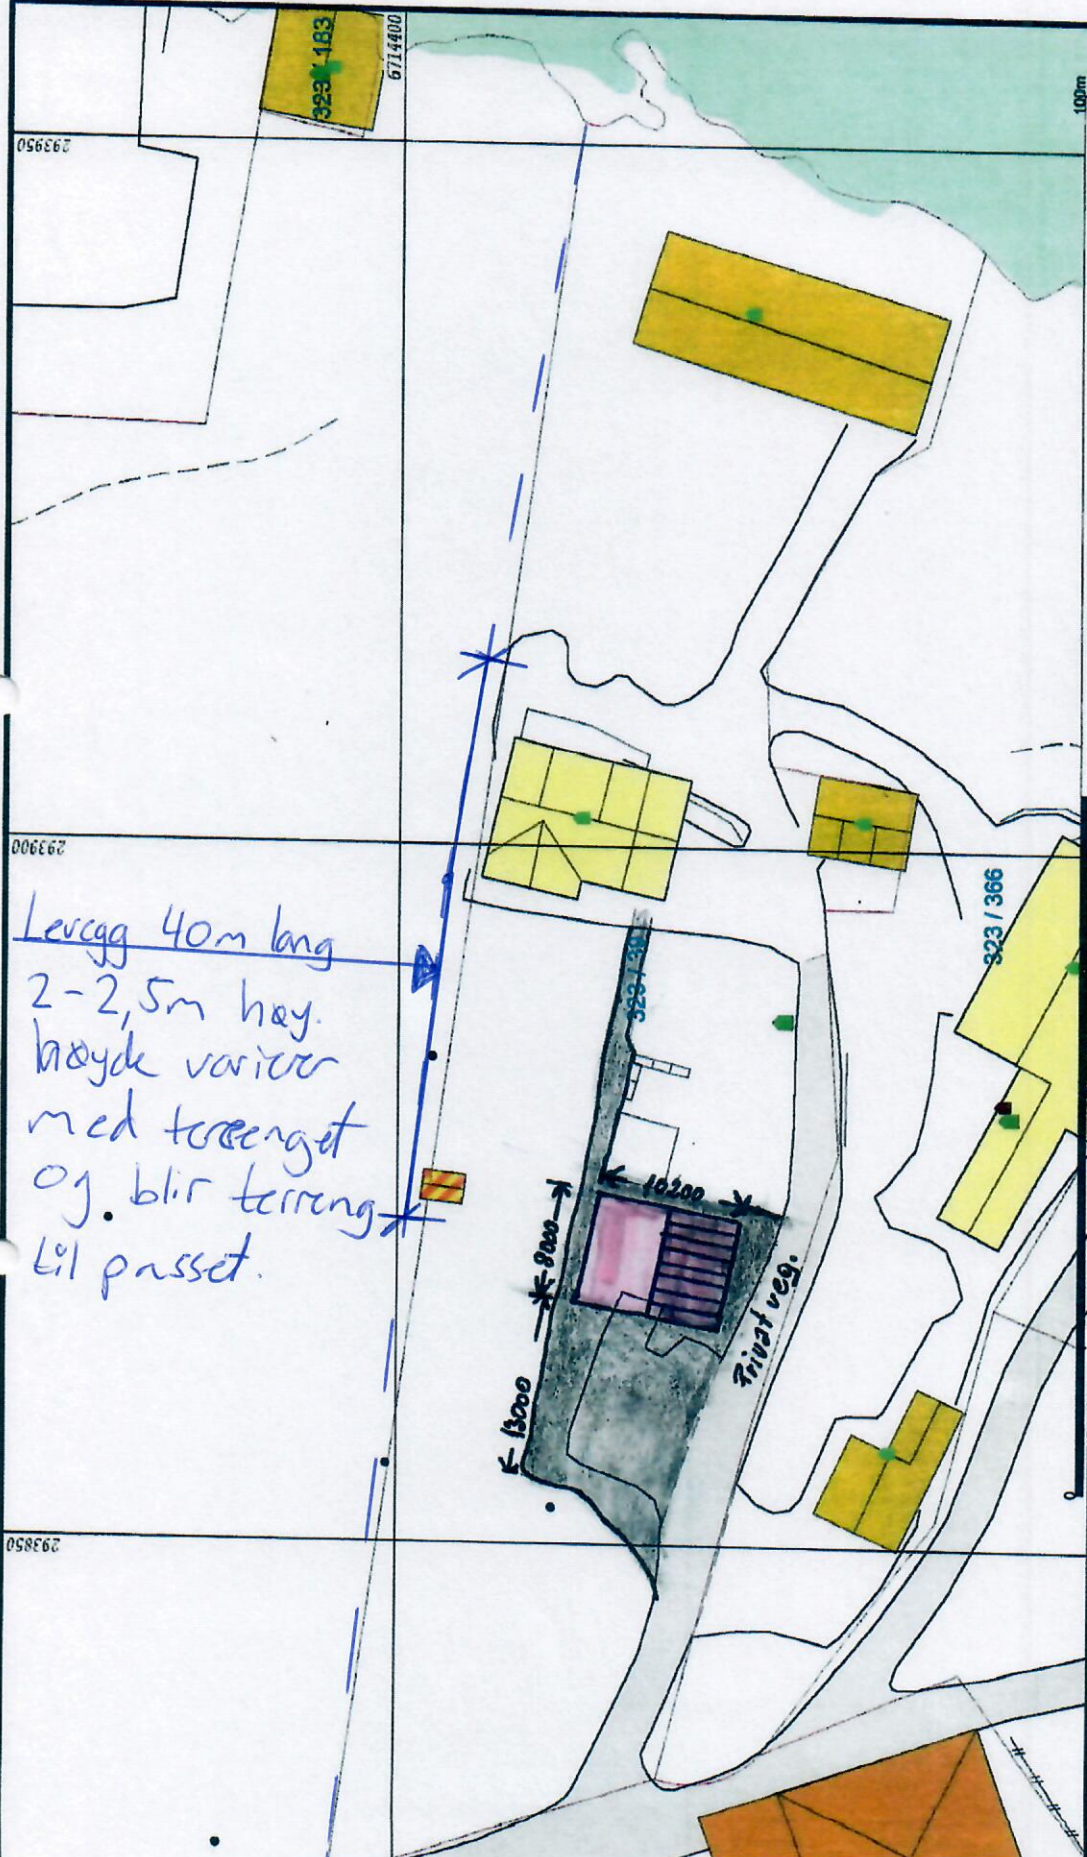 323 / 183
6714400
100m
293950
293900
323 / 366
Levegg 40m lang
2-2,5m høy.
høyde varierer
med terrenget
og blir terreng
til passet.
10200
8000
13000
Privat veg.
293850
0